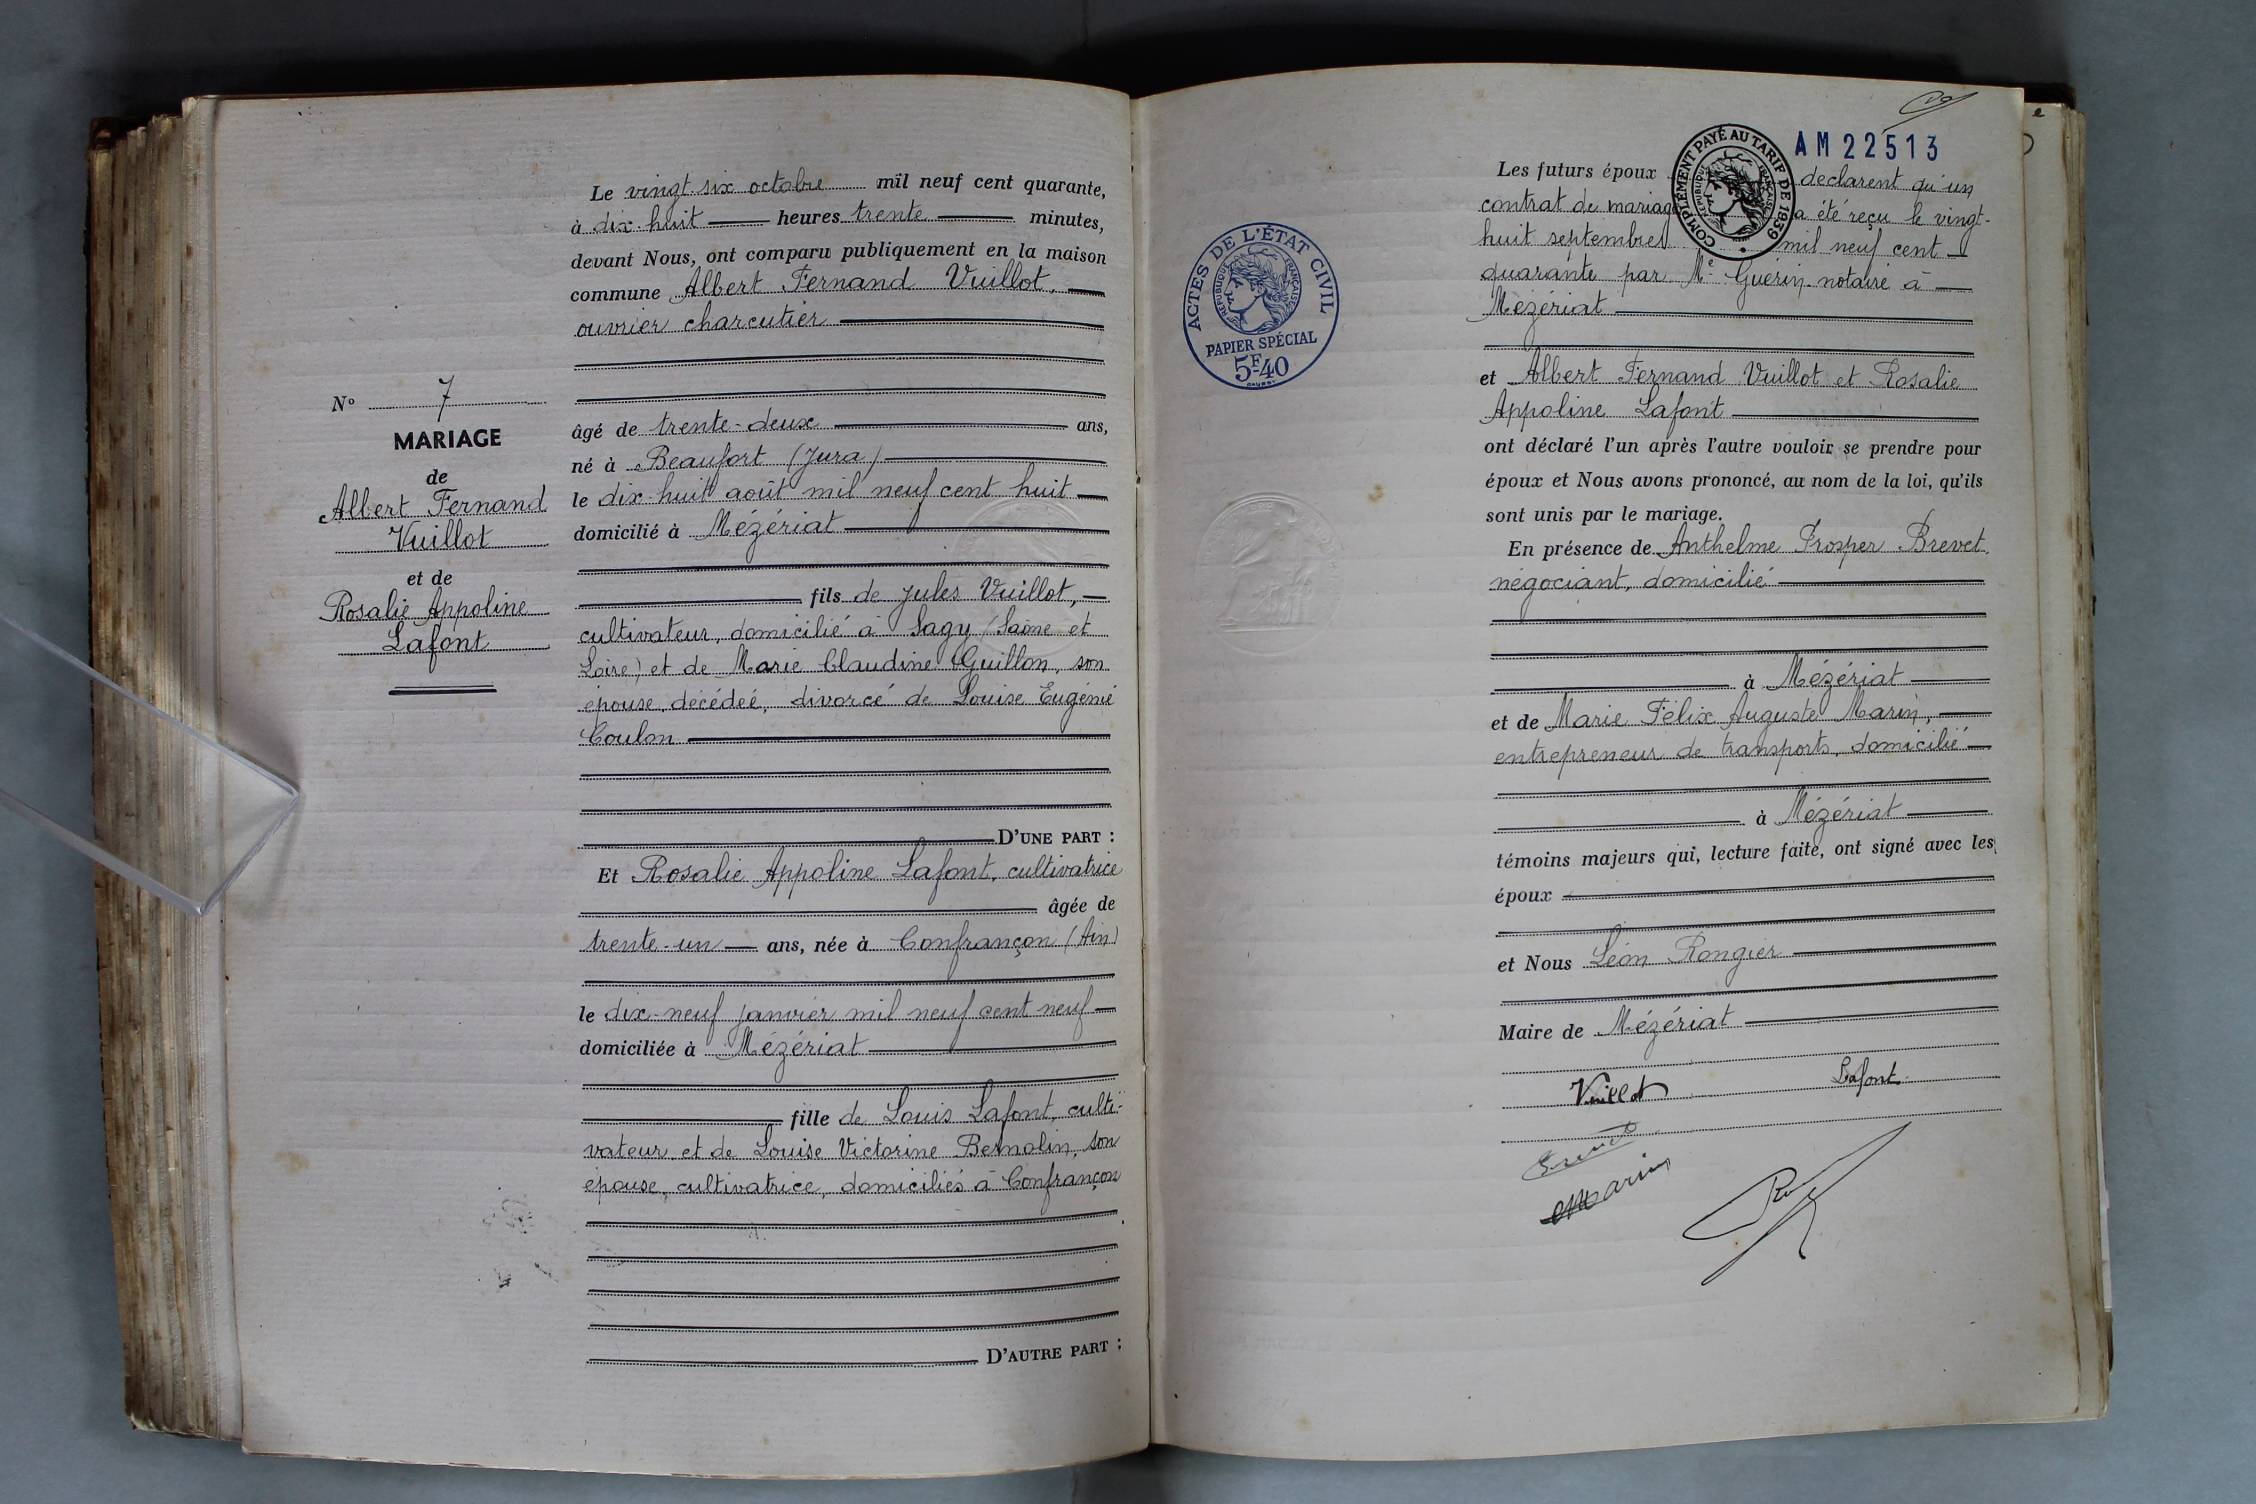 N° 7
MARIAGE
de
Albert Fernand
Vuillot
et de
Rosalie Appoline
Lafont
Le vingt-six octobre mil neuf cent quarante,
à dix-huit heures trente minutes,
devant Nous, ont comparu publiquement en la maison
commune Albert Fernand Vuillot,
ouvrier charcutier
âgé de trente-deux ans,
né à Beaufort (Jura)
le dix-huit août mil neuf cent huit
domicilié à Mézériat
fils de Jules Vuillot,
cultivateur, domicilié à Sagy (Saône et
Loire) et de Marie Claudine Guillon, son
épouse, décédée, divorcé de Louise Eugénie
Coulon
D'UNE PART :
Et Rosalie Appoline Lafont, cultivatrice
âgée de
trente-un ans, née à Confrançon (Ain)
le dix-neuf janvier mil neuf cent neuf
domiciliée à Mézériat
fille de Louis Lafont, culti-
vateur et de Louise Victorine Bernolin, son
épouse, cultivatrice, domiciliés à Confrançon
D'AUTRE PART :
ACTES DE L'ÉTAT CIVIL
RÉPUBLIQUE FRANÇAISE
PAPIER SPÉCIAL
5F40
COMPLÉMENT PAYÉ AU TARIF DE 1939
RÉPUBLIQUE FRANÇAISE
AM22513
Les futurs époux déclarent qu'un
contrat de mariage a été reçu le vingt-
huit septembre mil neuf cent
quarante par Me Guérin notaire à
Mézériat
et Albert Fernand Vuillot et Rosalie
Appoline Lafont
ont déclaré l'un après l'autre vouloir se prendre pour
époux et Nous avons prononcé, au nom de la loi, qu'ils
sont unis par le mariage.
En présence de Anthelme Prosper Brevet,
négociant, domicilié
à Mézériat
et de Marie Félix Auguste Marin,
entrepreneur de transports, domicilié
à Mézériat
témoins majeurs qui, lecture faite, ont signé avec les
époux
et Nous Léon Rongier
Maire de Mézériat
Vuillot Lafont
Marin